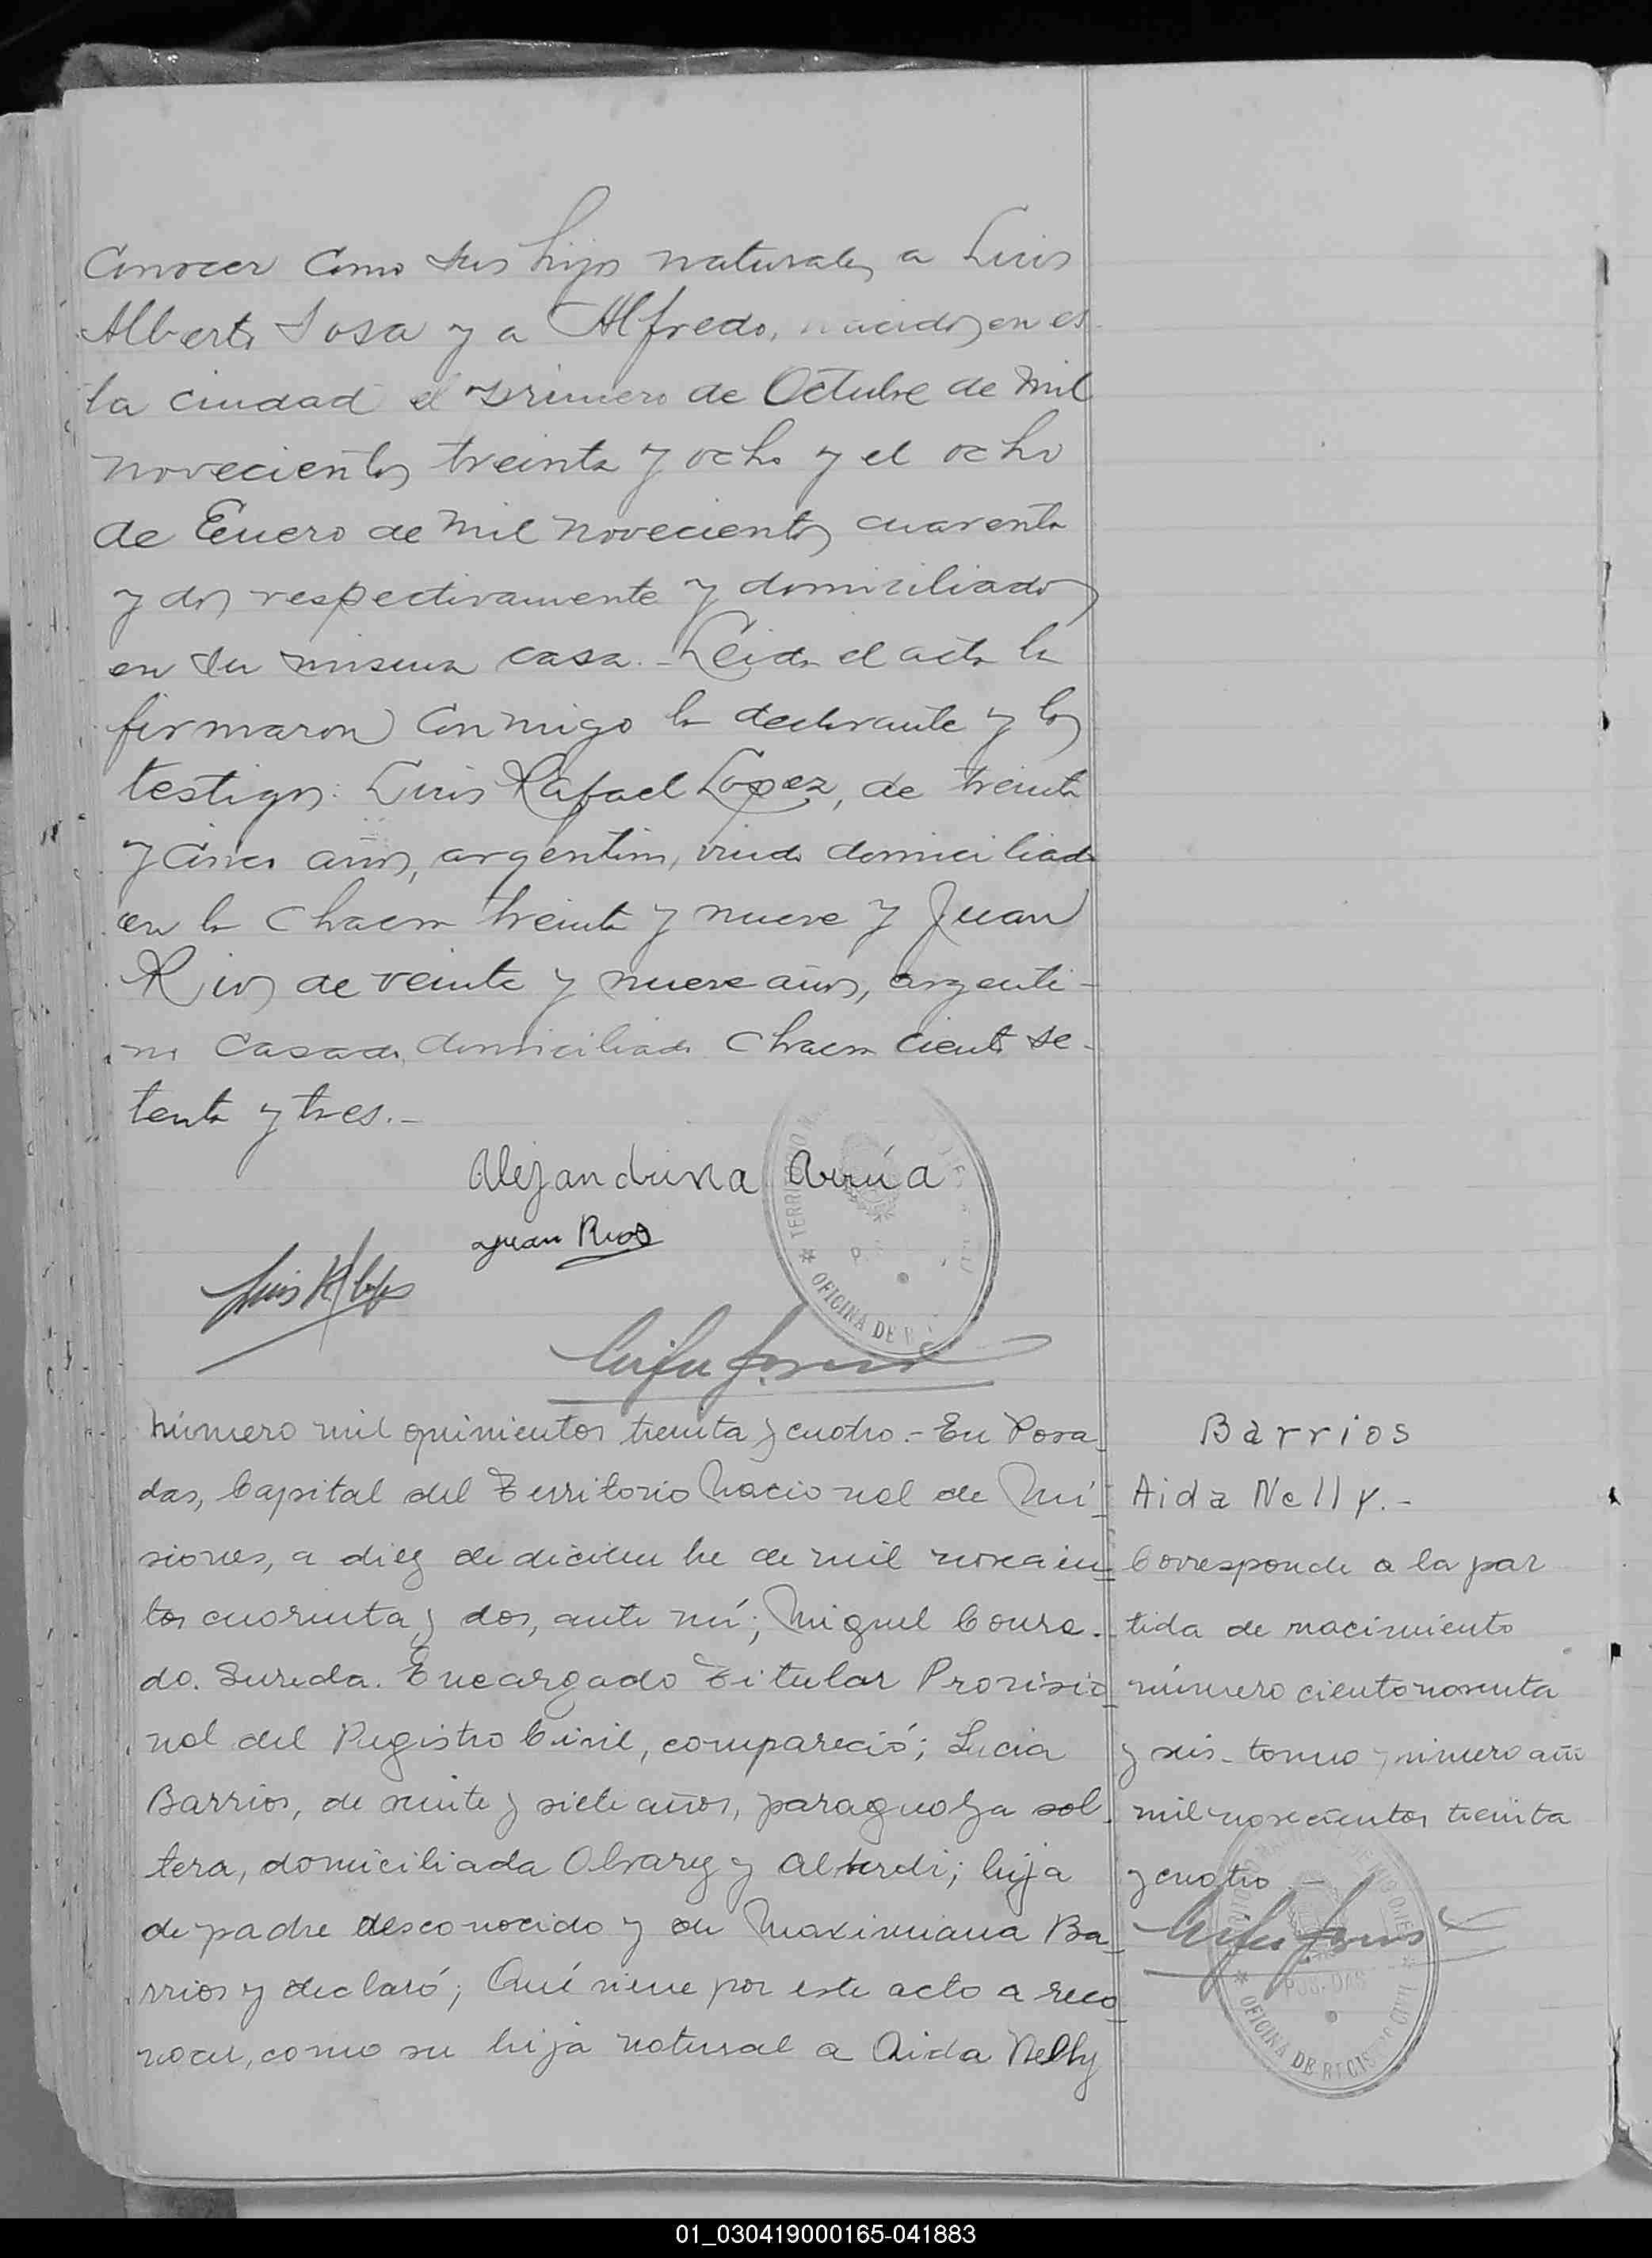 conocer como sus hijos naturales a Luis
Alberto Sosa y a Alfredo, nacidos en es
ta ciudad el primero de Octubre de mil
novecientos treinta y ocho y el ocho
de Enero de mil novecientos cuarenta
y dos respectivamente y domiciliados
en su misma casa.- Leida el acta la
firmaron conmigo la declarante y los
testigos: Luis Rafael Lopez, de treinta
y cinco años, argentino, viudo domiciliado
en la chacra treinta y nueve y Juan
Rios de veinte y nueve años, argenti-
no casado, domiciliado chacra ciento se-
tenta y tres.-
Alejandrina Arrúa
Juan Rios
Luis R Lopez
TERRITORIO
OFICINA DE
Número mil quinientos treinta y cuatro.- En Posa-
das, Capital del Territorio Nacional de Mi-
siones, a diez de diciembre de mil novecien-
tos cuarenta y dos, ante mí; Miguel Conra-
do. Sureda. Encargado Titular Provisio-
nal del Registro Civil, compareció; Lucia
Barrios, de veinte y siete años, paraguaya sol-
tera, domiciliada Olvarez y Alberdi; hija
de padre desconocido y de Maximiana Ba-
rrios y declaró; Qué viene por este acto a reco-
nocer, como su hija natural a Aida Nelly
Barrios
Aida Nelly.-
Corresponde a la par
tida de nacimiento
número ciento noventa
y seis- tomo primero año
mil novecientos treinta
y cuatro.-
POSADAS
OFICINA DE REGISTRO CIVIL
01_030419000165-041883